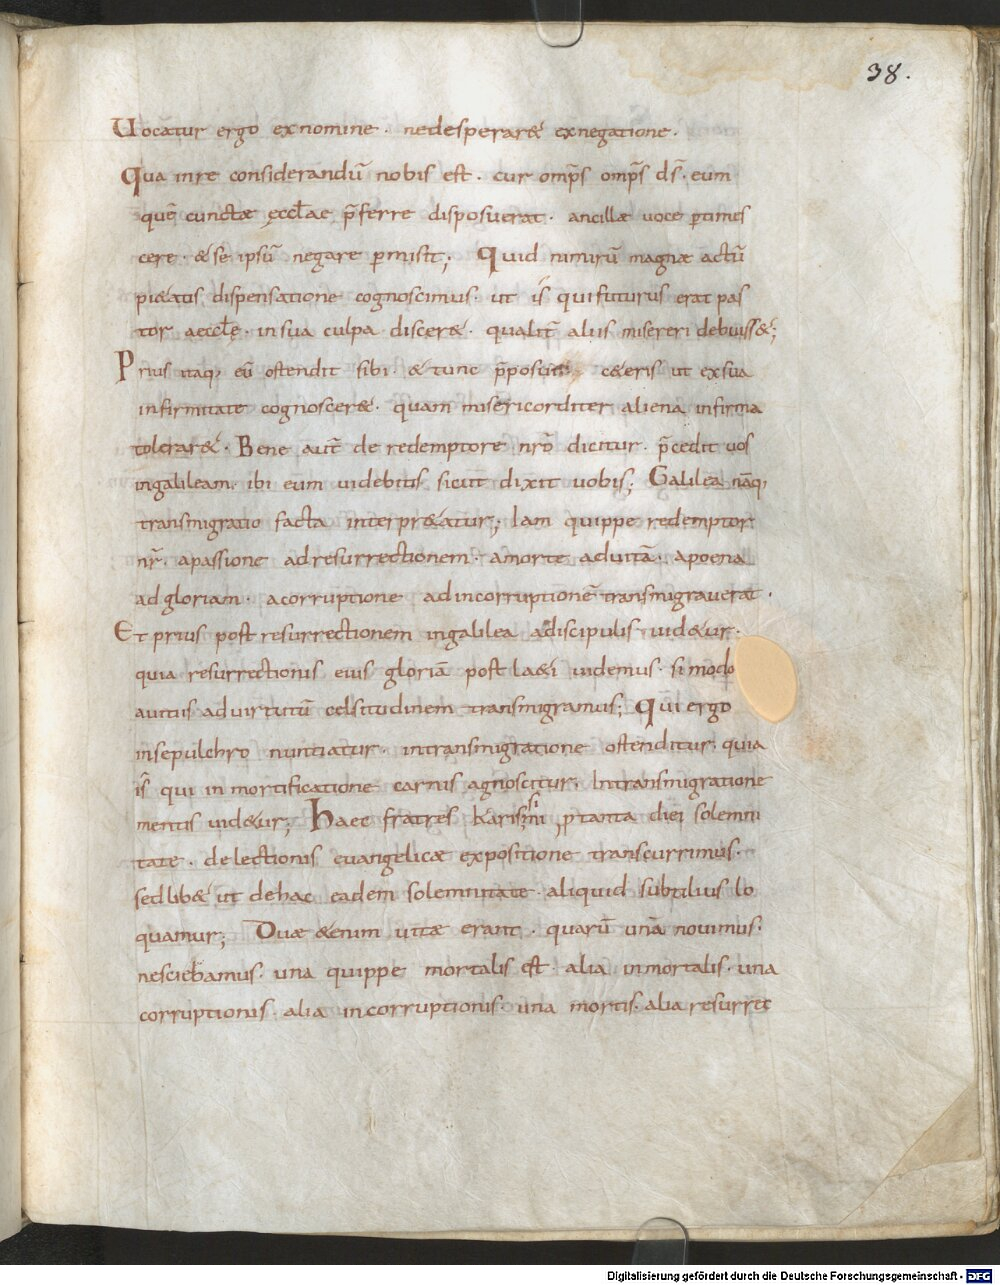 38.
Uocatur ergo exnomine · nedesperar& exnegatione ·
Qua inre considerandū nobis est · cur omp̄s omp̄s ds̄ · eum
quē cunctae ęccl̄ae p̄ferre disposuerat · ancillae uoce ꝑtimes
cere · & se ipsū negare ꝑmisit; Quid nimirū magnae actū
pi&atis dispensatione cognoscimus · ut is quifuturus erat pas
tor aeccl̄ę · insua culpa discer& · qualit̄ aliis misereri debuiss&;
Prius itaq; eū ostendit sibi · & tunc p̄posuit c&eris ut exsua
infirmitate cognoscer& · quam misericorditer aliena infirma
tolerar& · Bene aut̄ de redemptore nr̄o dicitur · p̄cedit uos
ingalileam · ibi eum uidebitis sicut dixit uobis; Galilea nāq;
transmigratio facta interpr&atur; Iam quippe redemptor
nr̄ · apassione adresurrectionem · amorte aduitā · apoena
adgloriam · acorruptione adincorruptionē transmigrauerat ·
Et prius post resurrectionem ingalilea adiscipulis uid&ur ·
quia resurrectionis eius gloriā post la&i uidemus · simodo
auitiis aduirtutū celsitudinem transmigramus; Qui ergo
insepulchro nuntiatur · intransmigratione ostenditur · quia
is qui inmortificatione carnis agnoscitur · Intransmigratione
mentis uid&ur; Haec fratres karissimi ꝓtanta diei solemni
tate · delectionis euangelicae expositione transcurrimus ·
sedlib& ut dehac eadem solemnitate · aliquid subtilius lo
quamur; Duae &enim uitae erant · quarū unā nouimus ·
nesciebamus · una quippe mortalis est · alia inmortalis · una
corruptionis · alia incorruptionis · una mortis · alia resurrec
Digitalisierung gefördert durch die Deutsche Forschungsgemeinschaft - DFG